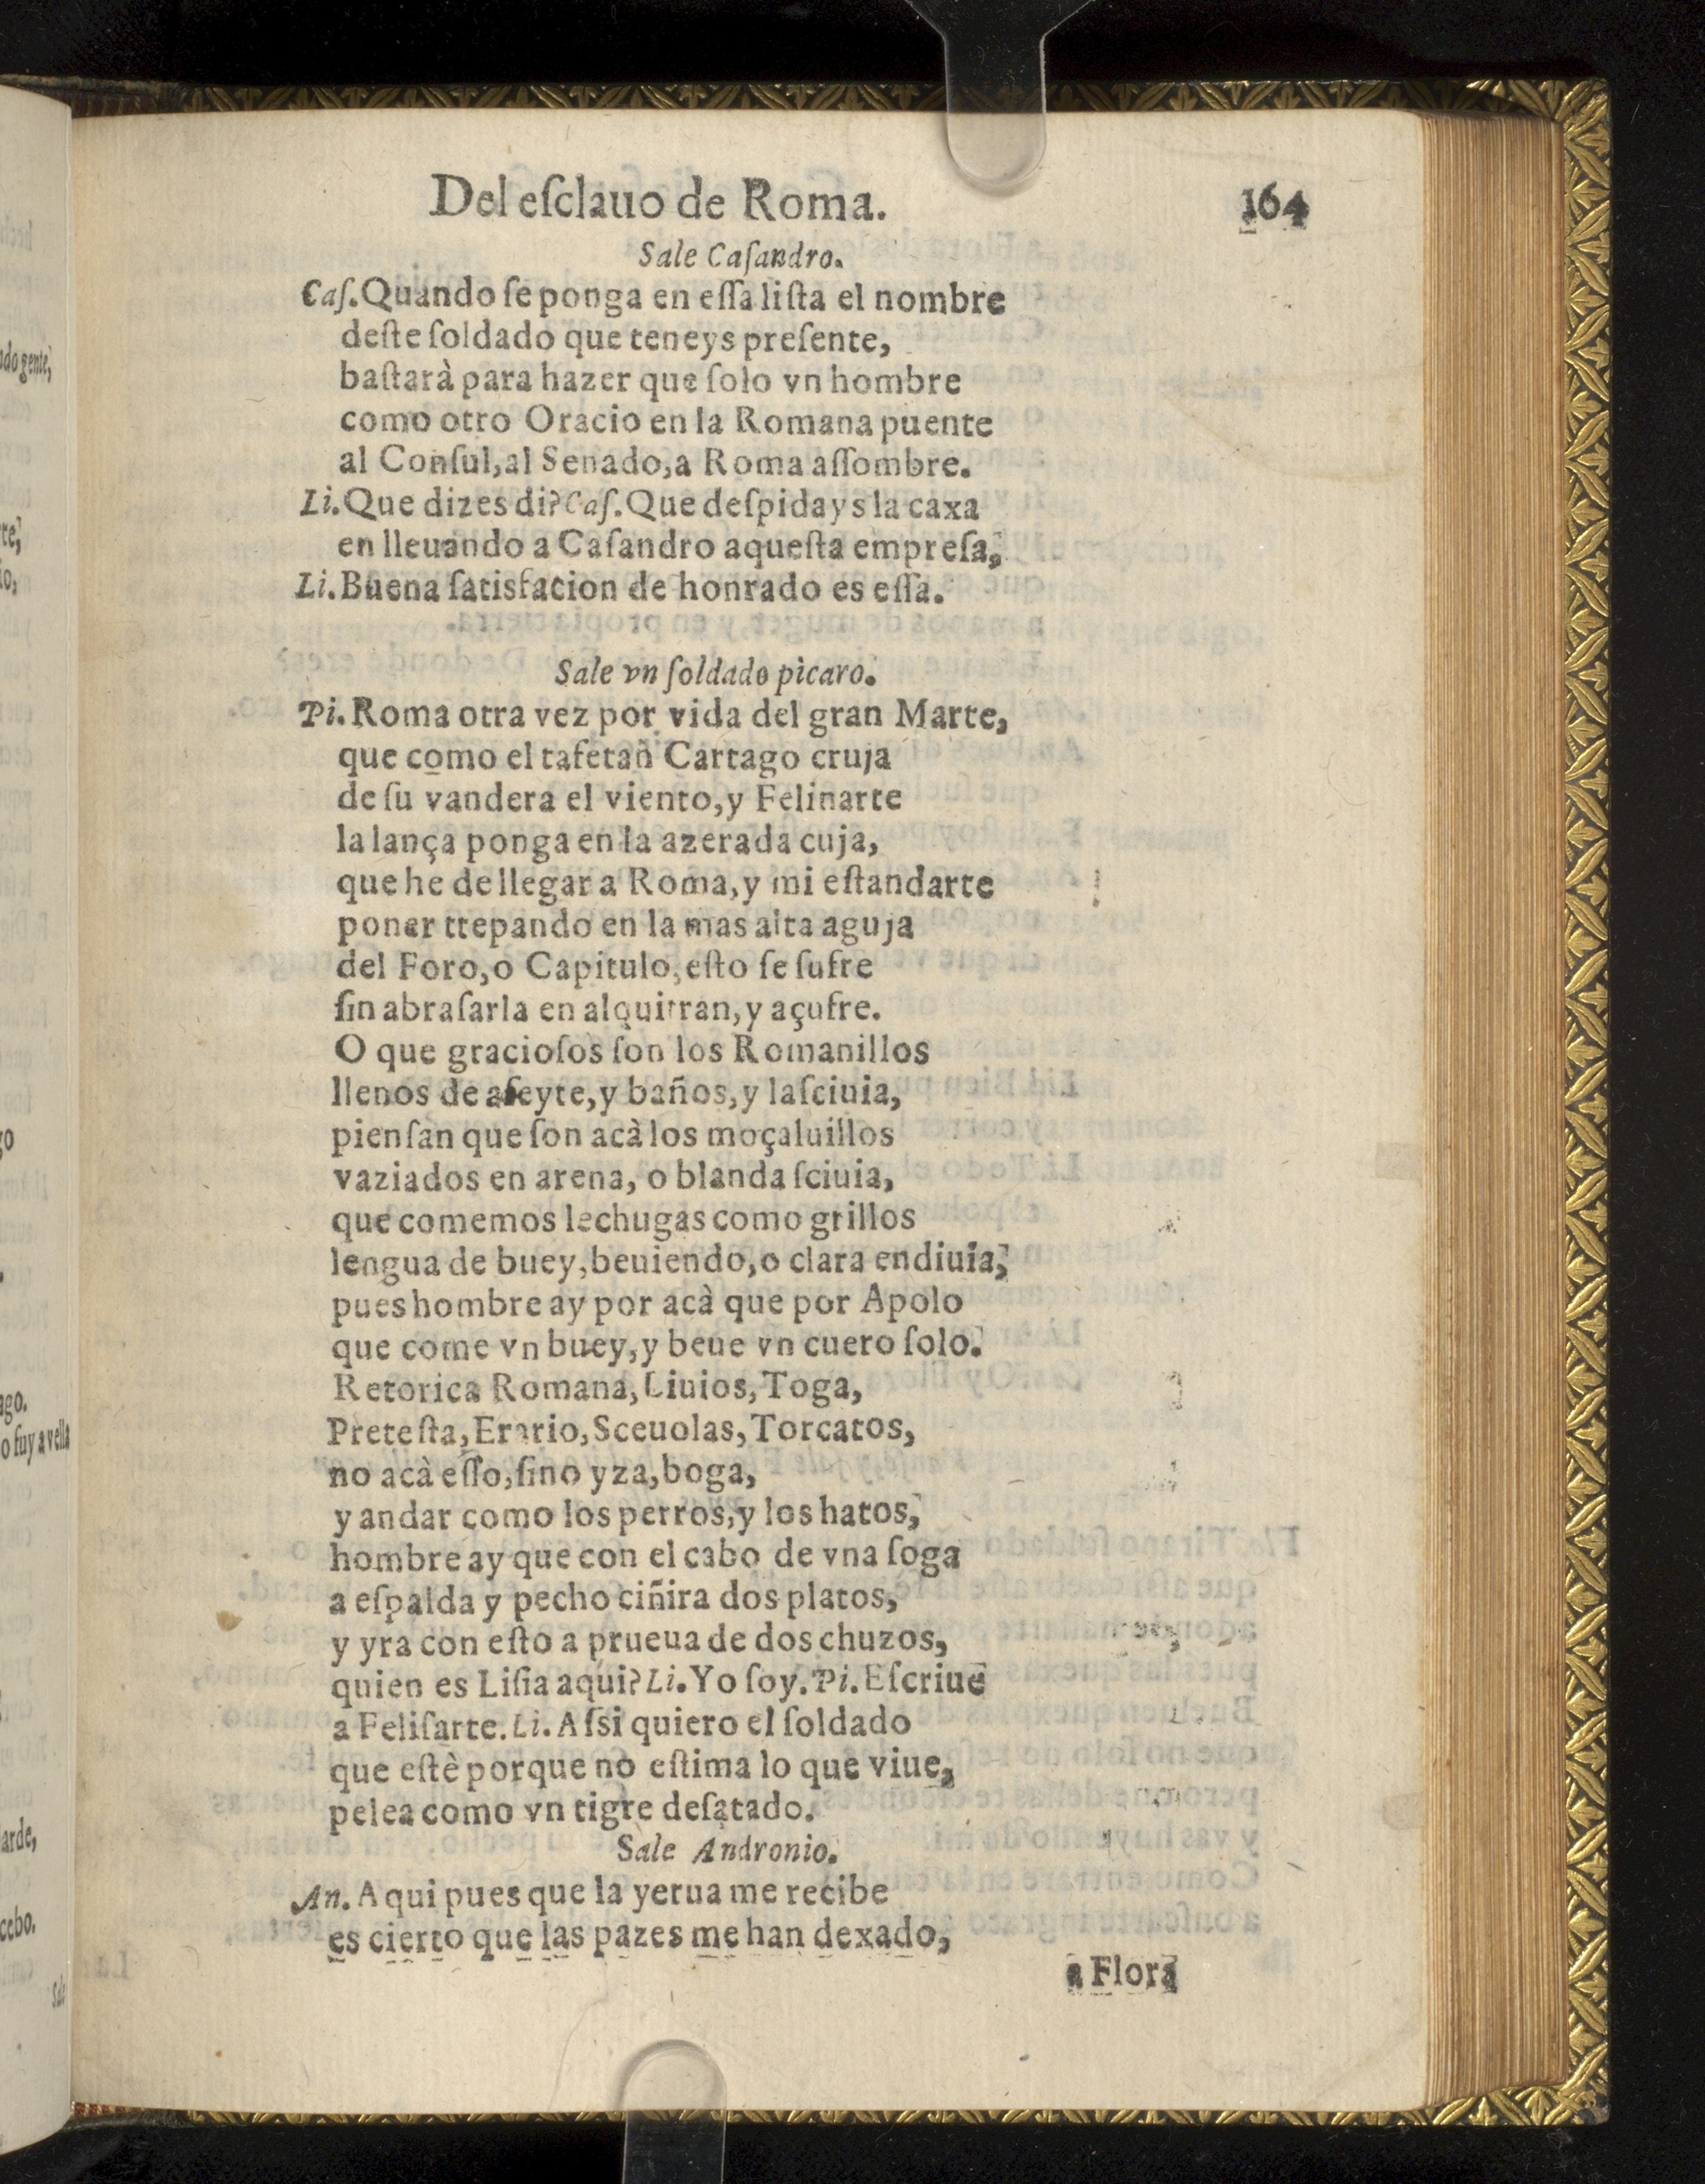 Del eſclauo de Roma. 164
Sale Caſandro.
Caſ. Quando ſe ponga en eſſa liſta el nombre
deſte ſoldado que teneys preſente,
baſtarà para hazer que ſolo vn hombre
como otro Oracio en la Romana puente
al Conſul, al Senado, a Roma aſſombre.
Li. Que dizes di? Caſ. Que deſpidays la caxa
en lleuando a Caſandro aqueſta empreſa,
Li. Buena ſatisfacion de honrado es eſſa.
Sale vn ſoldado picaro.
Pi. Roma otra vez por vida del gran Marte,
que como el tafetan Cartago cruja
de ſu vandera el viento, y Felinarte
la lança ponga en la azerada cuja,
que he de llegar a Roma, y mi eſtandarte
poner ttepando en la mas alta aguja
del Foro, o Capitulo, eſto ſe ſufre
ſin abraſarla en alquitran, y açufre.
O que gracioſos ſon los Romanillos
llenos de afeyte, y baños, y laſciuia,
pienſan que ſon acà los moçaluillos
vaziados en arena, o blanda ſciuia,
que comemos lechugas como grillos
lengua de buey, beuiendo, o clara endiuia,
pues hombre ay por acà que por Apolo
que come vn buey, y beue vn cuero ſolo.
Retorica Romana, Liuios, Toga,
Preteſta, Erario, Sceuolas, Torcatos,
no acà eſſo, ſino yza, boga,
y andar como los perros, y los hatos,
hombre ay que con el cabo de vna ſoga
a eſpalda y pecho ciñira dos platos,
y yra con eſto a prueua de dos chuzos,
quien es Liſia aqui? Li. Yo ſoy. Pi. Eſcriue
a Feliſarte. Li. Aſsi quiero el ſoldado
que eſtè porque no eſtima lo que viue,
pelea como vn tigre deſatado.
Sale Andronio.
An. Aqui pues que la yerua me recibe
es cierto que las pazes me han dexado,
a Flora